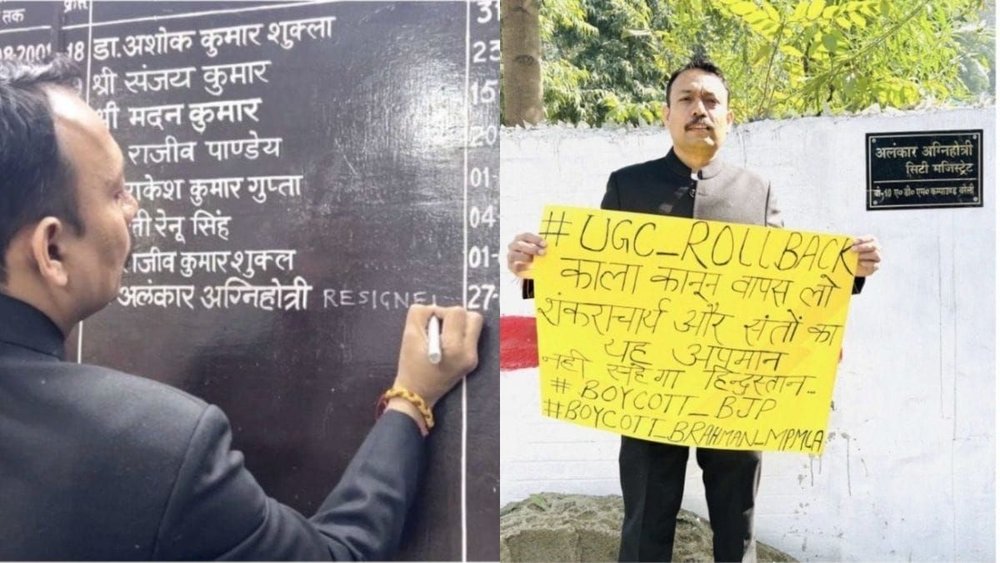 तक
31
08-2001
18 डा.अशोक कुमार शुक्ला
23
श्री संजय कुमार
15
श्री मदन कुमार
20
राजीव पाण्डेय
01-
राकेश कुमार गुप्ता
04-
रेनू सिंह
01-
राजीव कुमार शुक्ल
27-
अलंकार अग्निहोत्री RESIGNE
अलंकार अग्निहोत्री
सिटी मजिस्ट्रेट
# UGC_ROLLBACK
काला कानून वापस लो
शंकराचार्य और संतों का
यह अपमान
नहीं सहेगा हिन्दुस्तान..
# BOYCOTT_BJP
#BOYCOTT_BRAHMAN_MPMLA